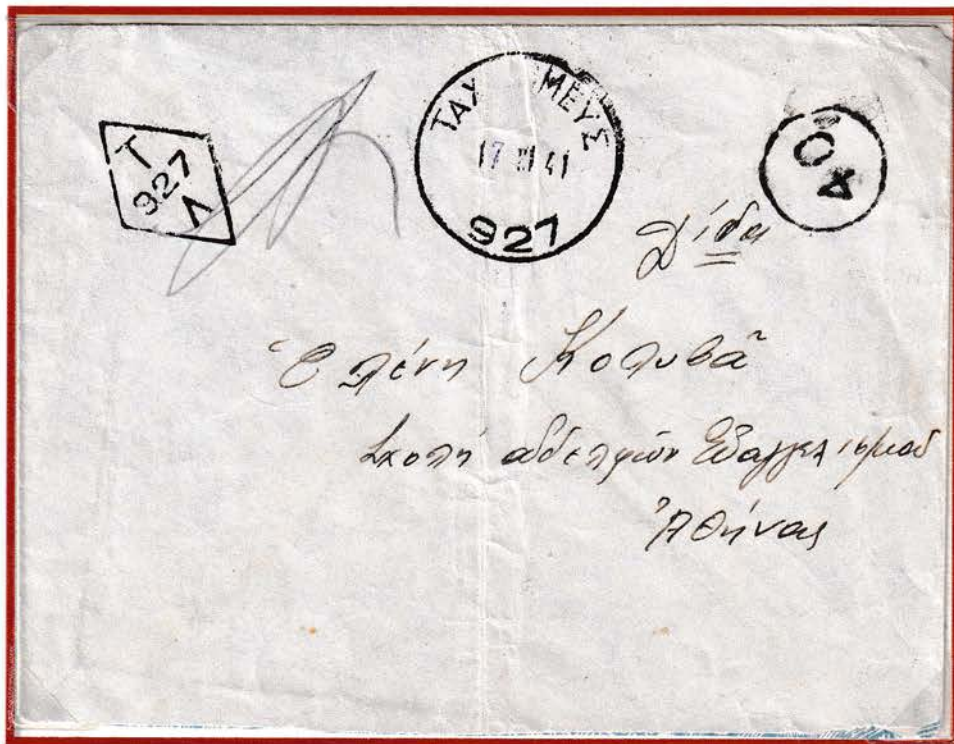 Τ
927
Λ
ΤΑΧ ΜΕΥΣ
17 III 41
927
40
Δίδα
Ἑλένη Κολυβᾶ
Σχολή αδδελφών Εὐαγγελισμού
Ἀθήνας